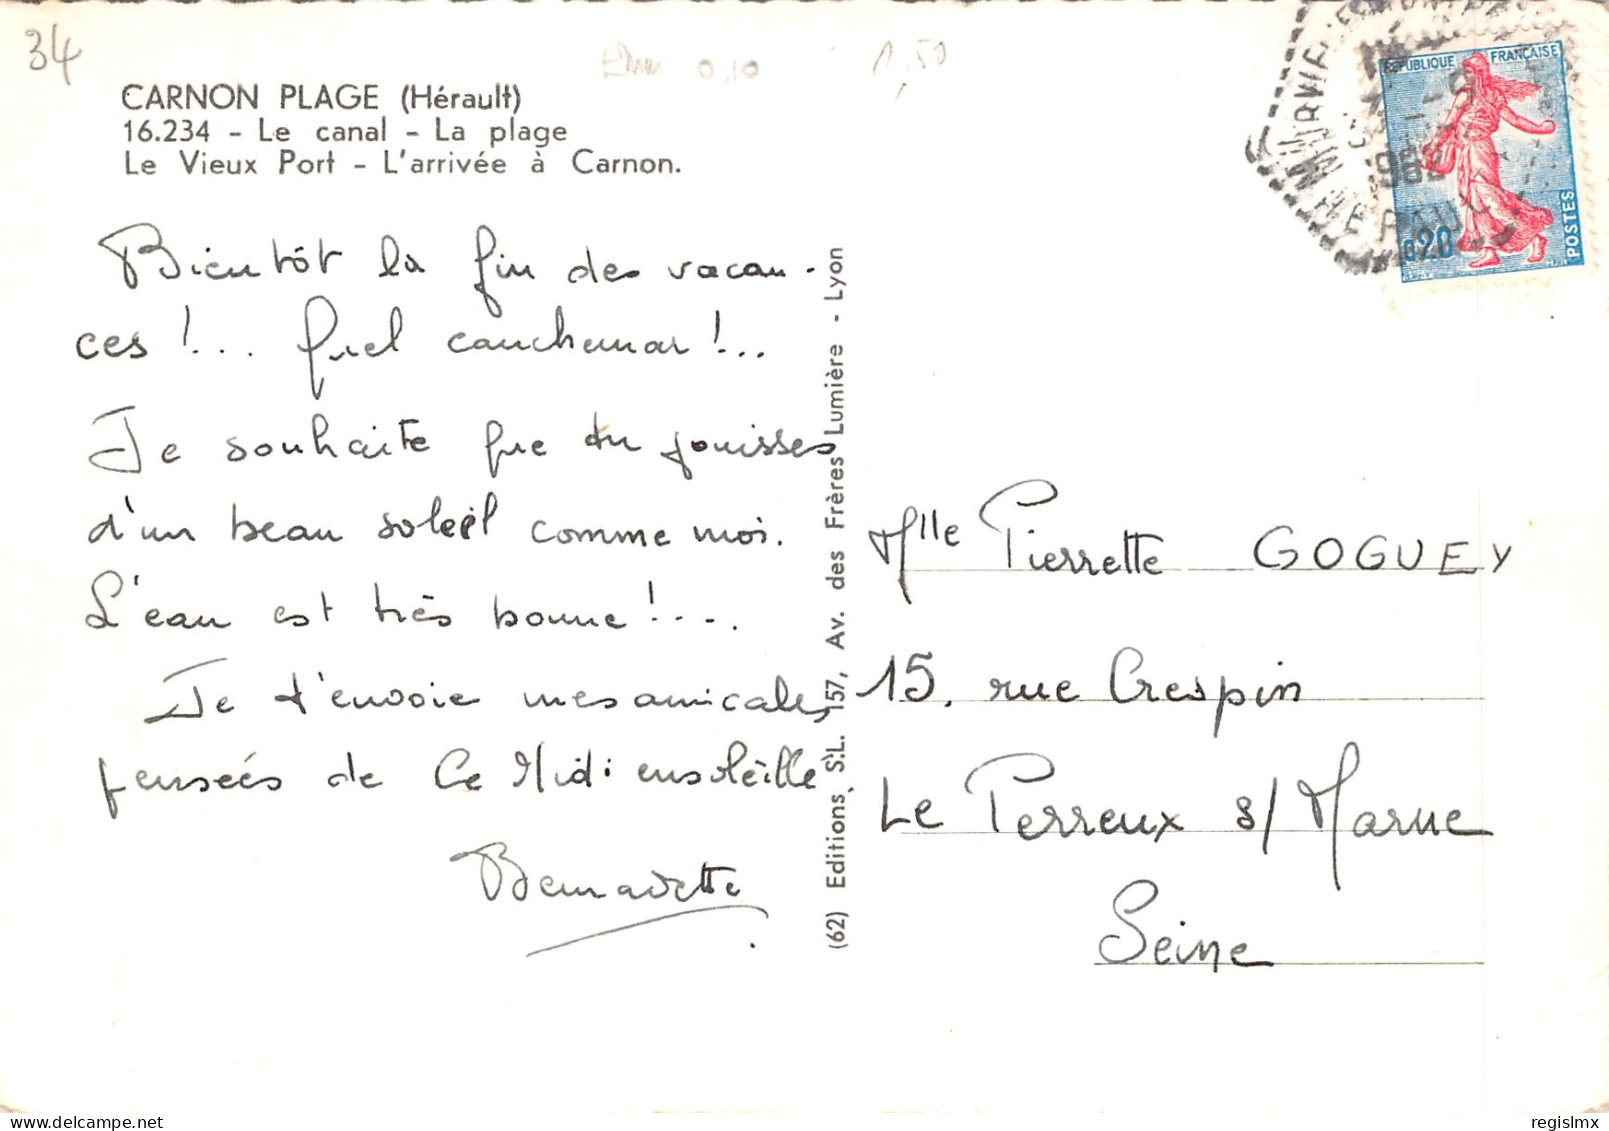 34
1,50
0,10
CARNON PLAGE (Hérault)
16.234 - Le canal - La plage
Le Vieux Port - L'arrivée à Carnon.
RÉPUBLIQUE FRANÇAISE
0,20
POSTES
Bientôt la fin des vacan-
ces !... Quel cauchemar !...
Je souhaite que tu jouisses
d'un beau soleil comme moi.
L'eau est très bonne !....
Je t'envoie mes amicales
pensées de ce Midi ensoleillé
Bernadette
(62) Editions S.L. 157, Av. des Frères Lumière - Lyon
Mlle Pierrette GOGUEY
15, rue Crespin
Le Perreux s/ Marne
Seine
regislmx